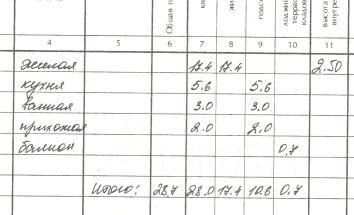 Общая п
жи
подсо
лоджий
террас
кладов
высота
внутре
4 5 6 7 8 9 10 11
жилая 17.4 17.4 2.50
кухня 5.6 5.6
ванная 3.0 3.0
прихожая 2.0 2.0
балкон 0.7
Итого: 28,7 28.0 17.4 10.6 0.7